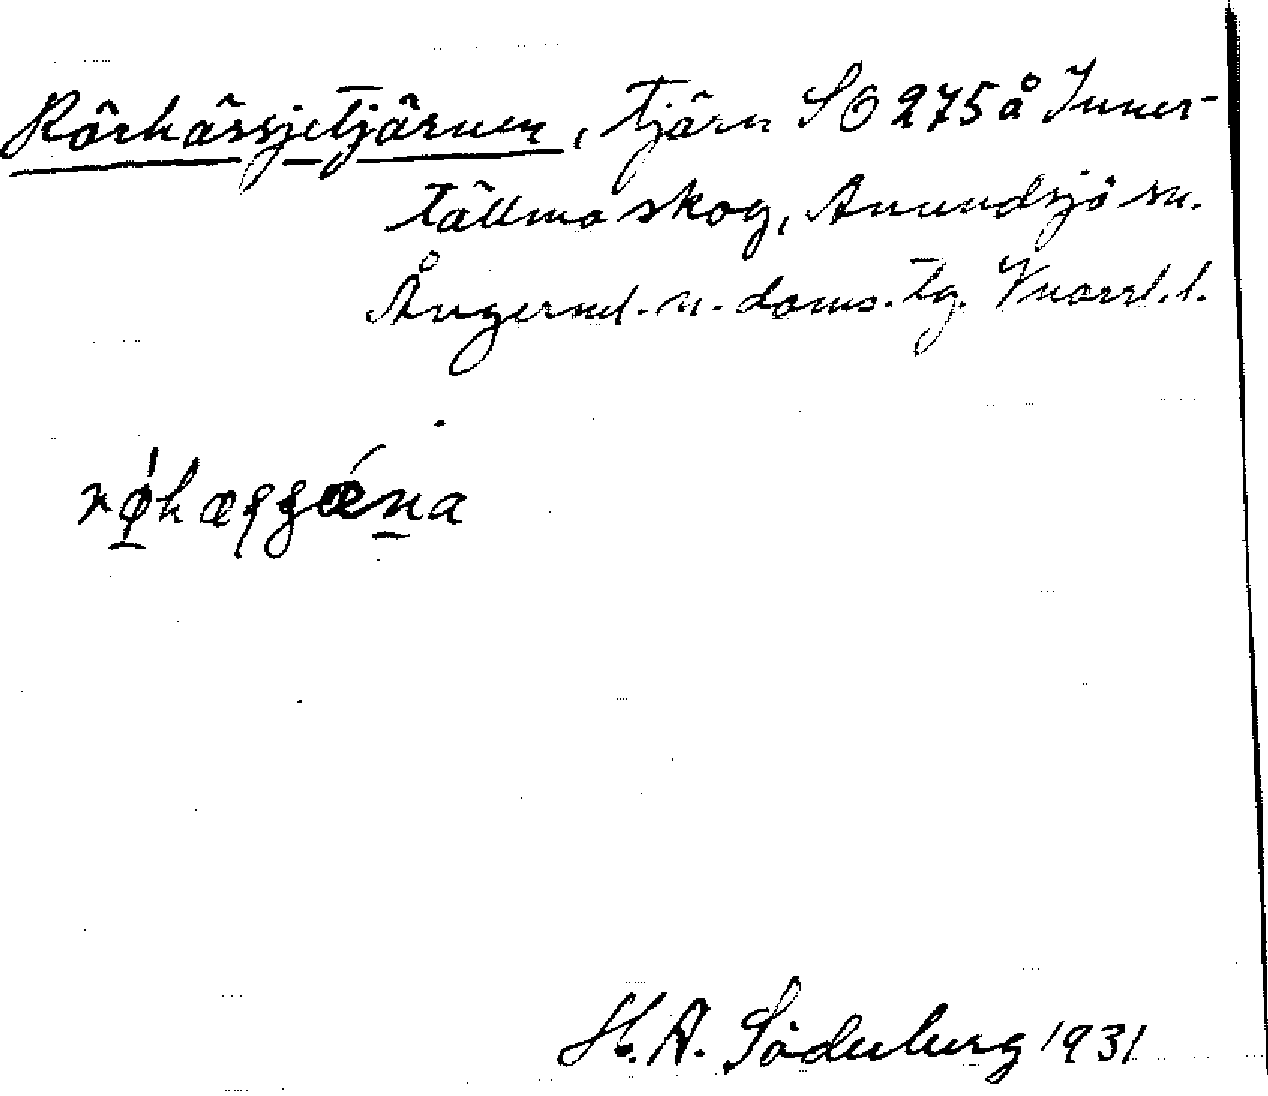 Rörhässjetjärnen, tjärn SO 275 å Inner-
tällmo skog, Anundsjö sn.
Ångerml. n. doms. tg. Vnorrl. l.
røhæşşæna
H. A. Söderberg 1931